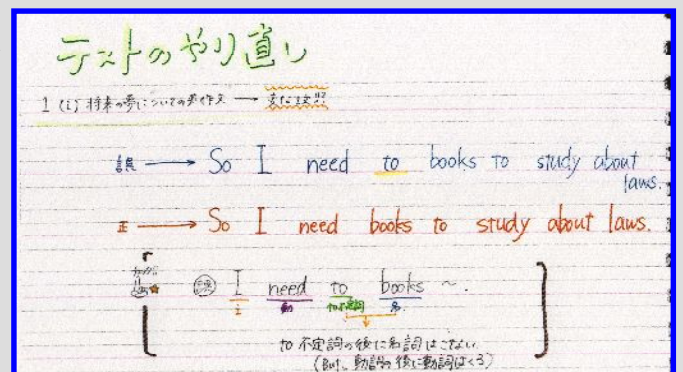 テストのやり直し
1 (2) 将来の夢についての英作文 → 変な文!!
誤 → So I need to books to study about laws.
正 → So I need books to study about laws.
誤 I need to books ~.
主 動 to不定詞 名
to 不定詞の後に名詞はこない
(But、動詞の後に動詞はくる)